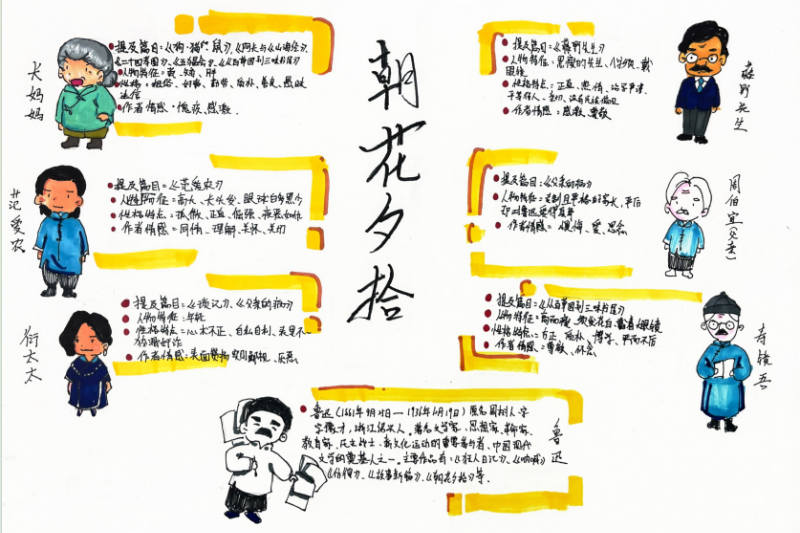 朝花夕拾
长妈妈
提及篇目:《狗·猫·鼠》、《阿长与《山海经》》、
《二十四孝图》、《五猖会》、《从百草园到三味书屋》
人物特征:黄、矮、胖
迷信
作者情感:愧疚、感激
范爱农
提及篇目:《范爱农》
人物特征:高大、长头发、眼球白多黑少
性格特点:孤傲、正直、倔强
作者情感:同情、理解、关怀、关切
衍太太
提及篇目:《琐记》、《父亲的病》
人物特征:年轻
性格特点:心术不正、自私自利
作者情感:表面赞扬实则鄙视、厌恶
藤野先生
提及篇目:《藤野先生》
人物特征:黑瘦的先生、八字须、戴
眼镜
性格特点:正直、热情、治学严谨、
平等待人
作者情感:感激、尊敬
周伯宜(父亲)
提及篇目:《父亲的病》
作者情感:懊悔、爱、思念
寿镜吾
提及篇目:《从百草园到三味书屋》
人物特征:高而瘦、须发花白、戴着大眼镜
性格特点:方正、质朴、博学、严而不厉
作者情感:尊敬、怀念
鲁迅
鲁迅(1881年9月25日—1936年10月19日)原名周树人,字
字豫才,浙江绍兴人。著名文学家、思想家、革命家、
教育家、民主战士,新文化运动的重要参与者,中国现代
文学的奠基人之一。主要作品有:《狂人日记》、《呐喊》
《彷徨》、《故事新编》、《朝花夕拾》等。